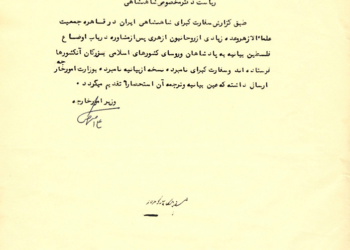 ریاست دفتر مخصوص شاهنشاهی
طبق گزارش سفارت کبرای شاهنشاهی ایران در قاهره جمعیت
علماء الازهر وعده زیادی از روحانیون ازهری پس از مشاوره در باب اوضاع
فلسطین بیانیه به پادشاهان وروسای کشورهای اسلامی
فرستاده اند وسفارت کبرای نامبرده نسخه از بیانیه نامبرده بوزارت امورخار
جه
ارسال داشته که عین بیانیه وترجمه آن استحضارا تقدیم میگردد.
وزیر امورخارجه